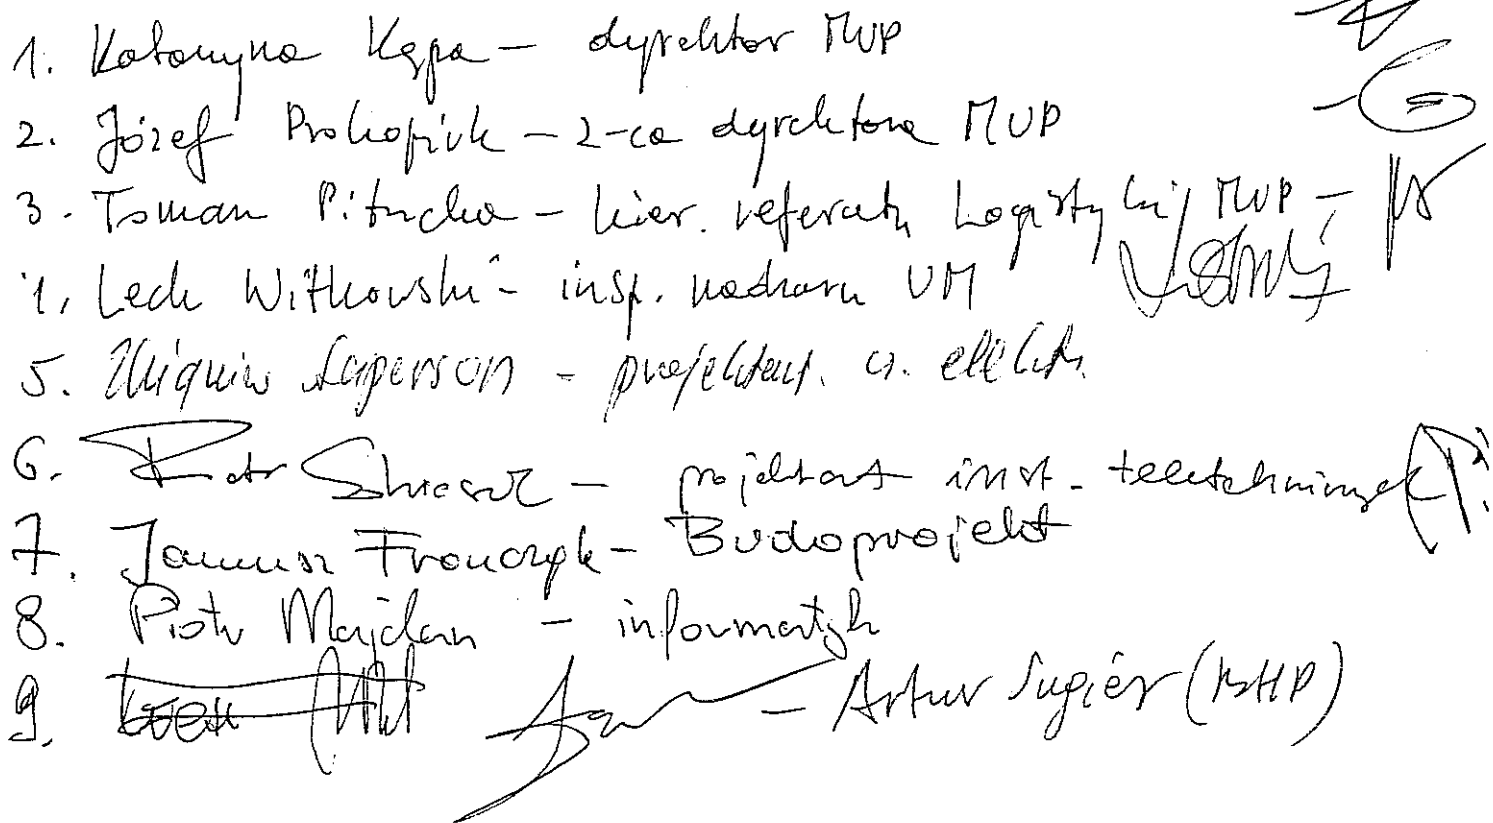 1. Katarzyna Kępa – dyrektor MUP
2. Józef Prokopiuk – z-ca dyrektora MUP
3. Roman Pitucha – kier. referatu Logistyki MUP –
4. Lech Witkowski – insp. nadzoru UM
5. Zbigniew – projektant. elektr.
6. Piotr – projektant inst. teletechnicznej
7. Janusz Franczyk – Budoprojekt
8. Piotr Majdan – informatyk
9. – Artur Sugier (BHP)